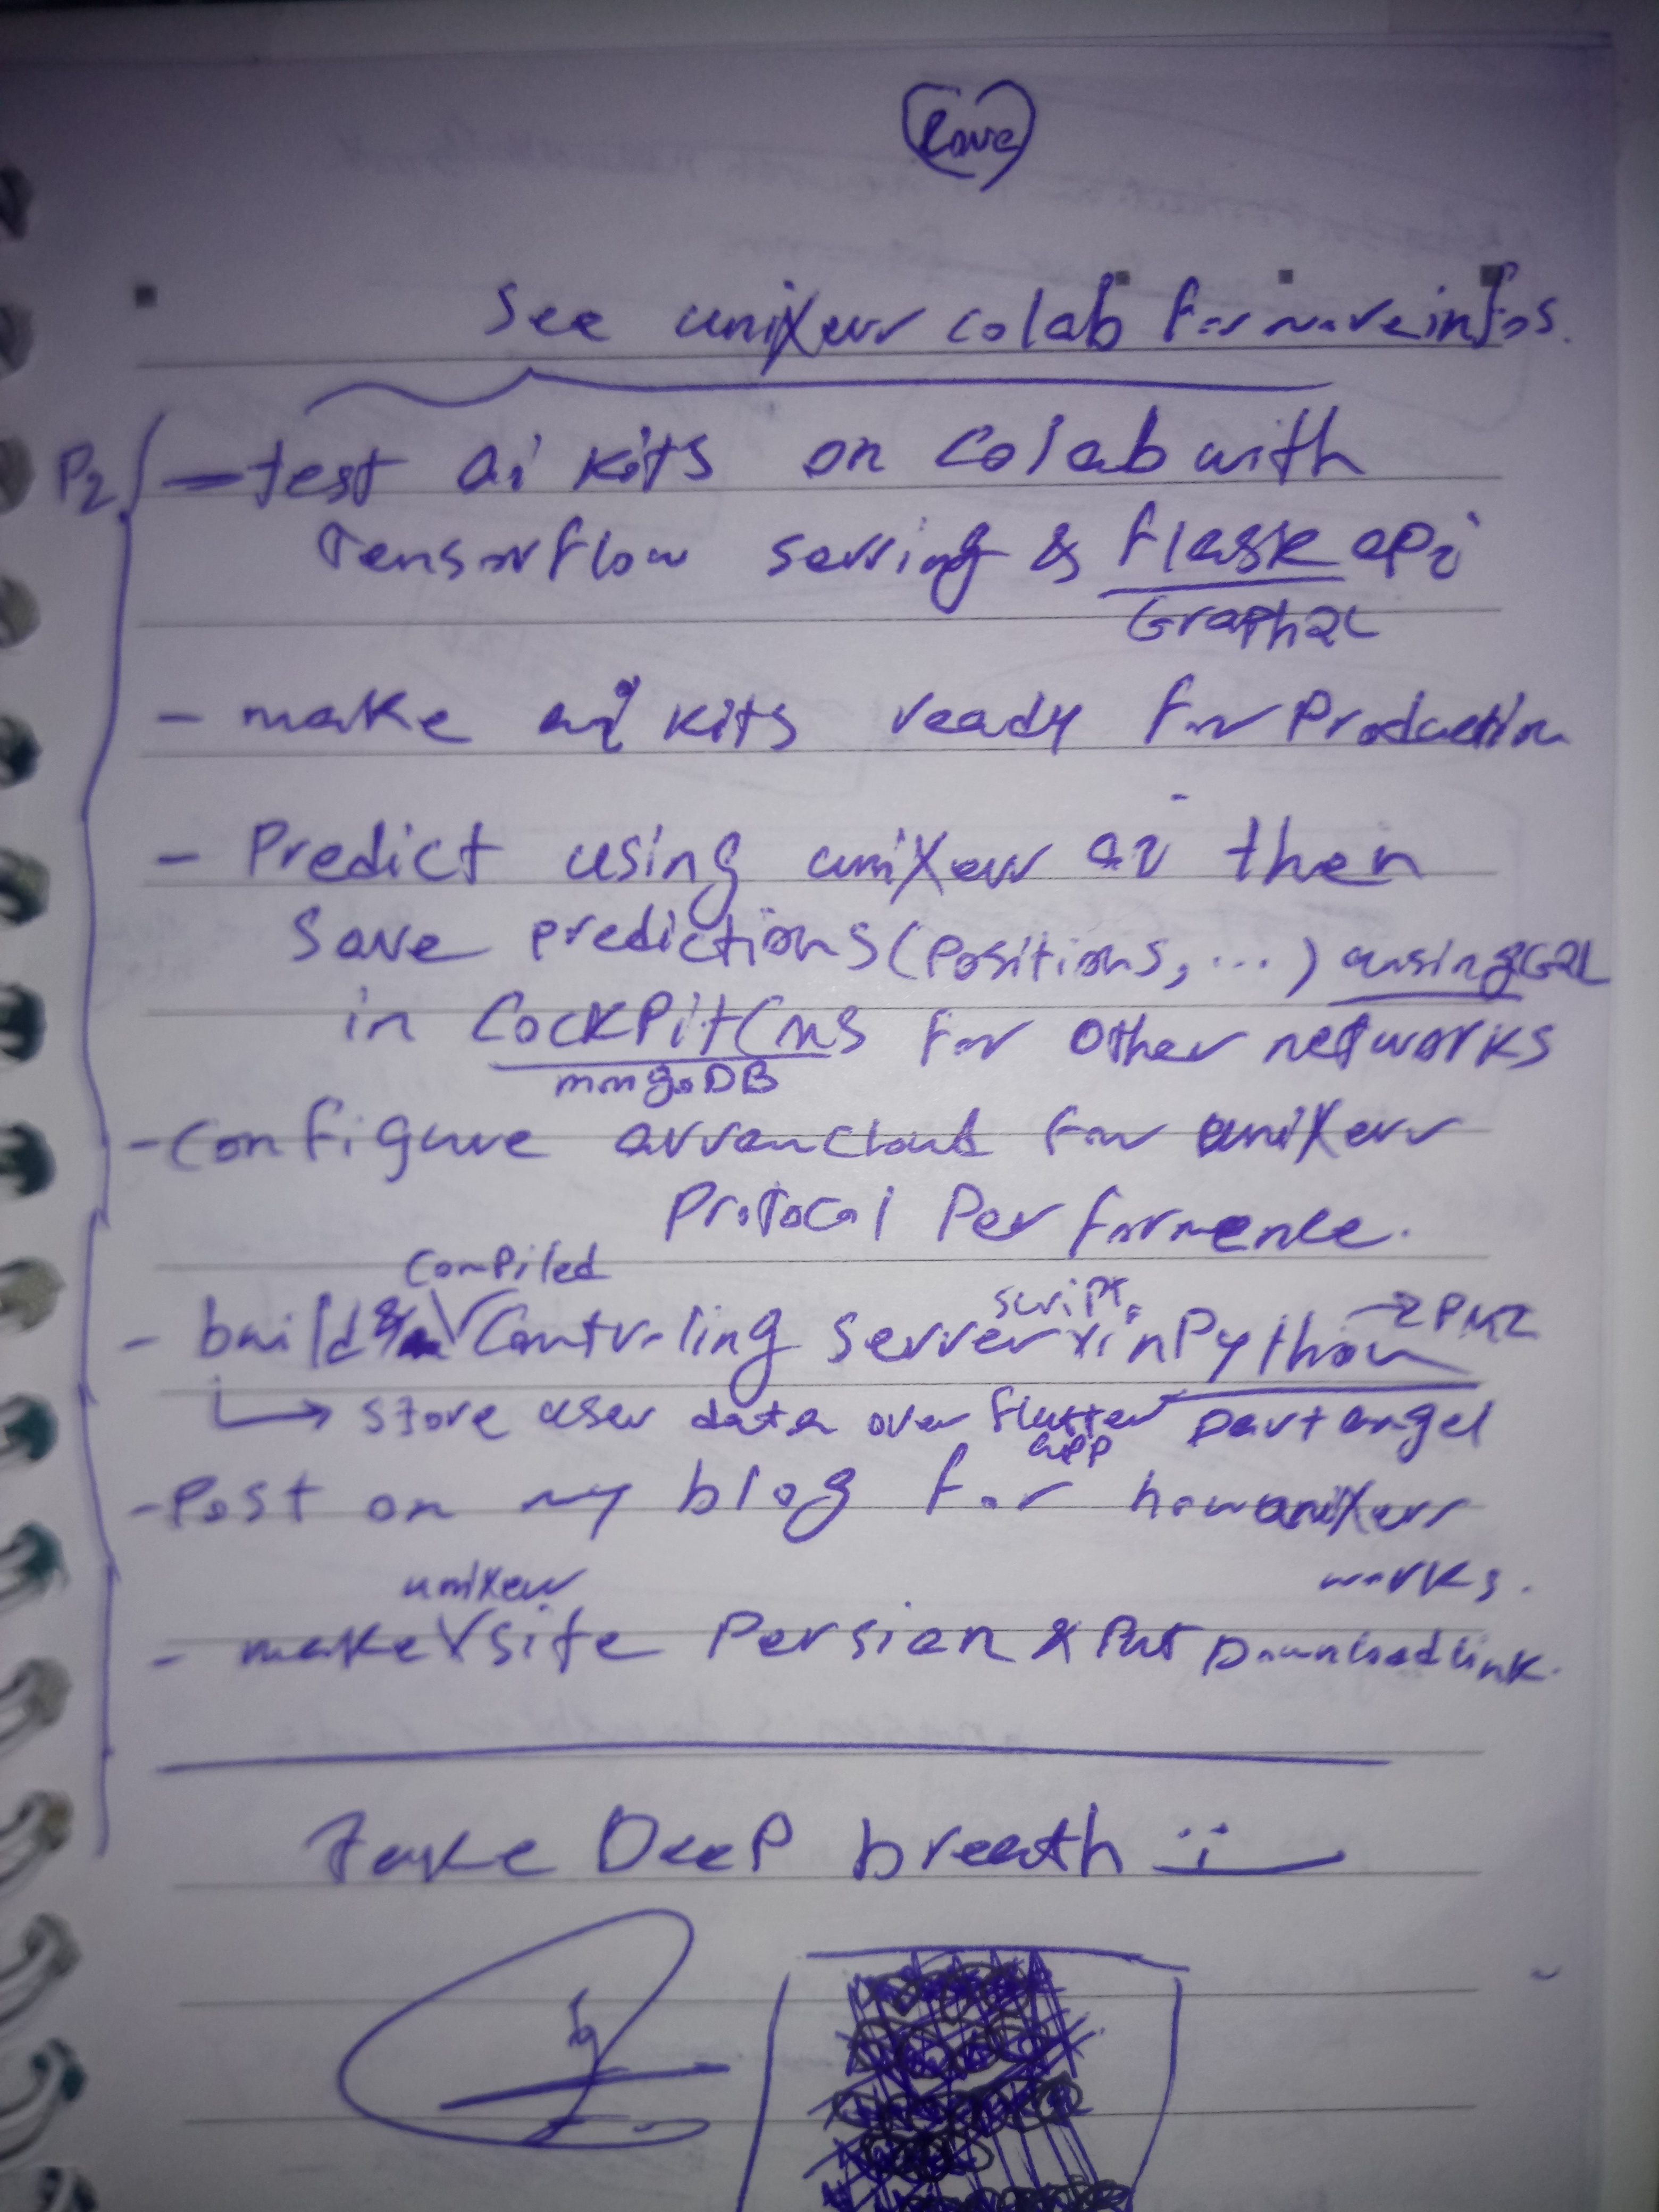 Love
See unixerr colab for more infos.
P2
- test ai kits on Colab with
Tensorflow serving & flask api
GraphQL
- make ai kits ready for Production
- Predict using unixerr ai then
Save predictions (Positions, ...) using GQL
in CockPitCms for Other networks
mongoDB
- Configure arvancloud for unixerr
Protocol Performence.
compiled
- build Controling server script in Python → ZPMZ
→ store user data over flutter app Dart angel
- Post on my blog for how unixerr
works.
unixerr
- make site Persian & Put Download link.
Take Deep breath